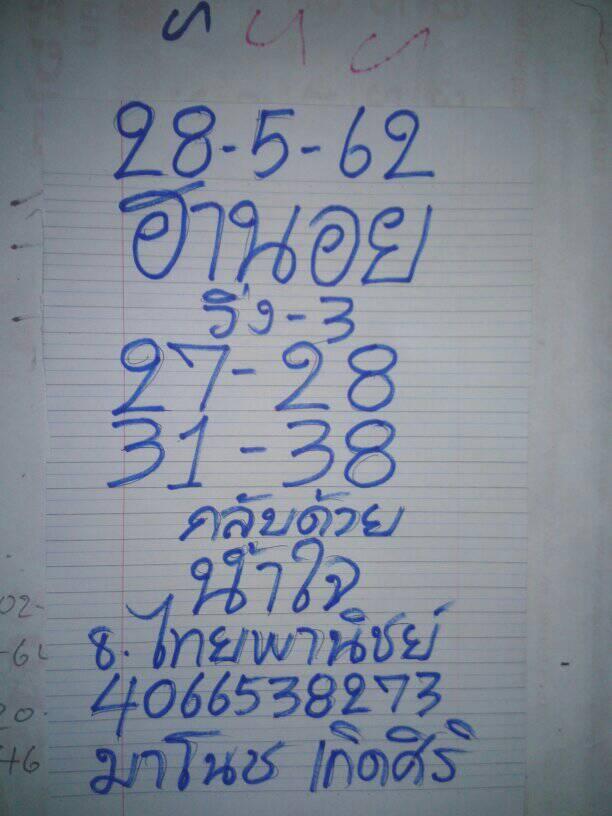 28-5-62
ฮานอย
วิ่ง-3
27-28
31-38
กลับด้วย
น้ำใจ
ธ.ไทยพานิชย์
4066538273
มาโนช เกิดศิริ
02-
-6
20.
46